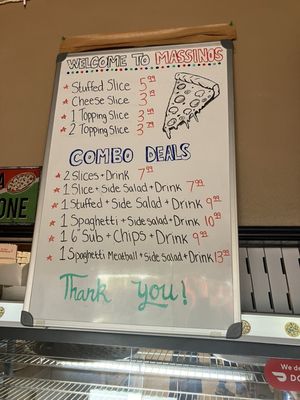 WELCOME TO MASSINOS
* Stuffed Slice 5.99
* Cheese Slice 3
* 1 Topping Slice 3
* 2 Topping Slice 3
COMBO DEALS
* 2 Slices + Drink 7.99
* 1 Slice + Side Salad + Drink 7.99
* 1 Stuffed + Side Salad + Drink 9.99
* 1 Spaghetti + Side salad + Drink 10.99
* 1 6" Sub + Chips + Drink 9.99
* 1 Spaghetti Meatball + side Salad + Drink 13.99
Thank You!
ONE
We de
DO